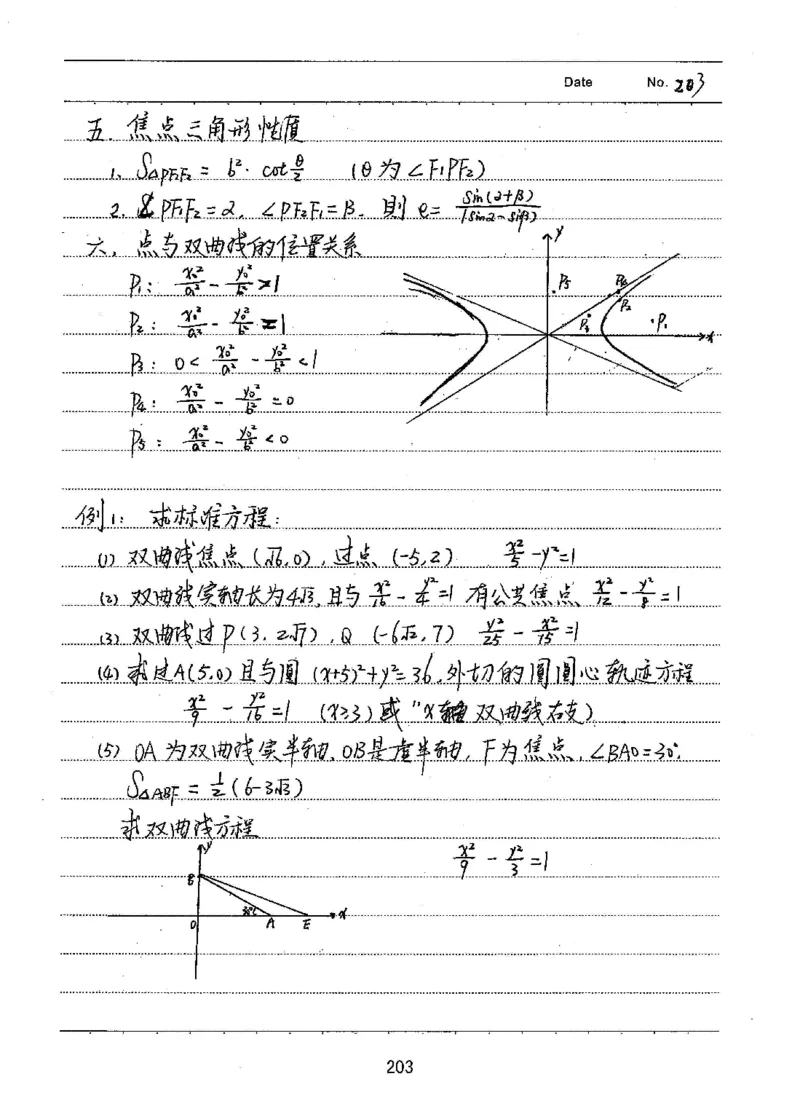 Date No. 203
五. 焦点三角形性质
1. S△PF₁F₂ = b²·cot θ/2 (θ为∠F₁PF₂)
2. ∠PF₁F₂=α, ∠PF₂F₁=β. 则 e= sin(α+β)/|sinα-sinβ|
六. 点与双曲线的位置关系
P₁: x₀²/a² - y₀²/b² >1
P₂: x₀²/a² - y₀²/b² =1
P₃: 0< x₀²/a² - y₀²/b² <1
P₄: x₀²/a² - y₀²/b² =0
P₅: x₀²/a² - y₀²/b² <0
y
P₅ P₄
P₂
P₃ P₁
x
例1: 求标准方程:
(1) 双曲线焦点 (√6,0), 过点 (-5,2) x²/5 -y²=1
(2) 双曲线实轴长为4√3, 且与 x²/16 - y²/4 =1 有公共焦点 x²/12 - y²/8 =1
(3) 双曲线过P(3, 2√7), Q (-6√2, 7) y²/25 - x²/75 =1
(4) 求过A(5,0)且与圆 (x+5)²+y²=36, 外切的圆圆心轨迹方程
x²/9 - y²/16 =1 (x≥3)或 "x轴 双曲线右支)
(5) OA 为双曲线实半轴, OB是虚半轴, F为焦点, ∠BAO=30°,
S△ABF = 1/2 (6-3√3)
求双曲线方程
x²/9 - y²/3 =1
y
B
30°
O A F x
203